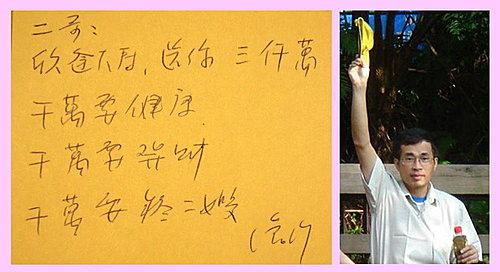 二哥:
欣逢大壽,送你三仟萬
千萬要健康
千萬要發財
千萬要疼二嫂